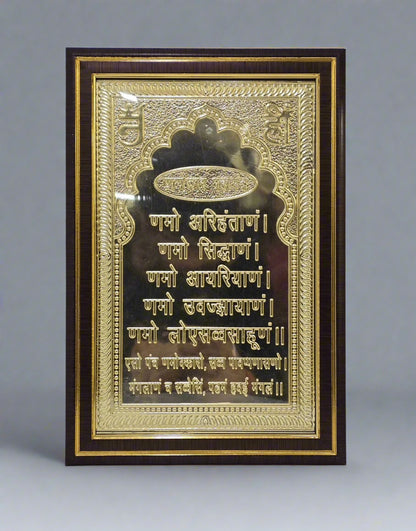 णमो अरिहंताणं।
णमो सिद्धाणं।
णमो आयरियाणं।
णमो उवज्झायाणं।
णमो लोएसव्वसाहूणं॥
एसो पंच णमोक्कारो, सव्व पावप्पणासणो।
मंगलाणं च सव्वेसिं, पढमं हवई मंगलं॥